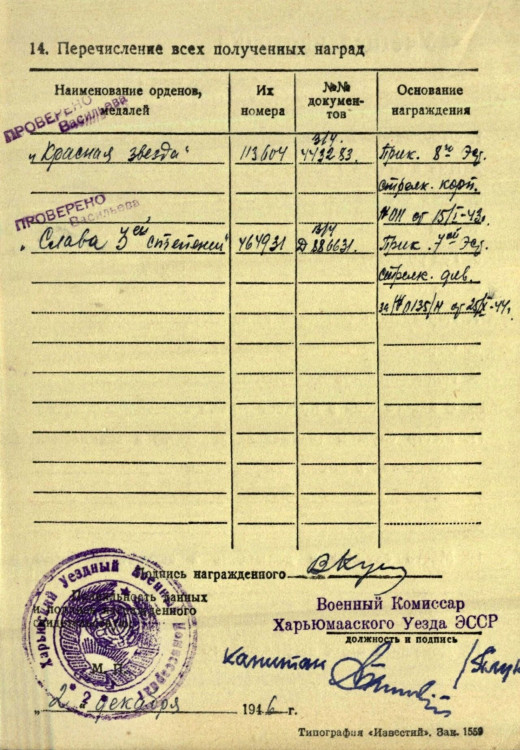 14. Перечисление всех полученных наград
Наименование орденов, медалей
Их номера
№№ документов
Основание награждения
ПРОВЕРЕНО
Васильева
„Красная звезда“ 113604 443283. Прик. 8го Эст.
стрелк. корп.
ПРОВЕРЕНО
Васильева
№ 011 от 15/I-43г.
„Слава 3ей степени“ 464931 Д 286631. Прик. 7ой Эст.
стрелк. див.
за № 0135/н от 44г.
Подпись награжденного
Правильность данных
и подпись награжденного
Военный Комиссар
Харьюмааского Уезда ЭССР
должность и подпись
капитан
М. П.
Харьюский Уездный Военный Комиссариат
„2“ декабря 1946 г.
Типография «Известий». Зак. 1559